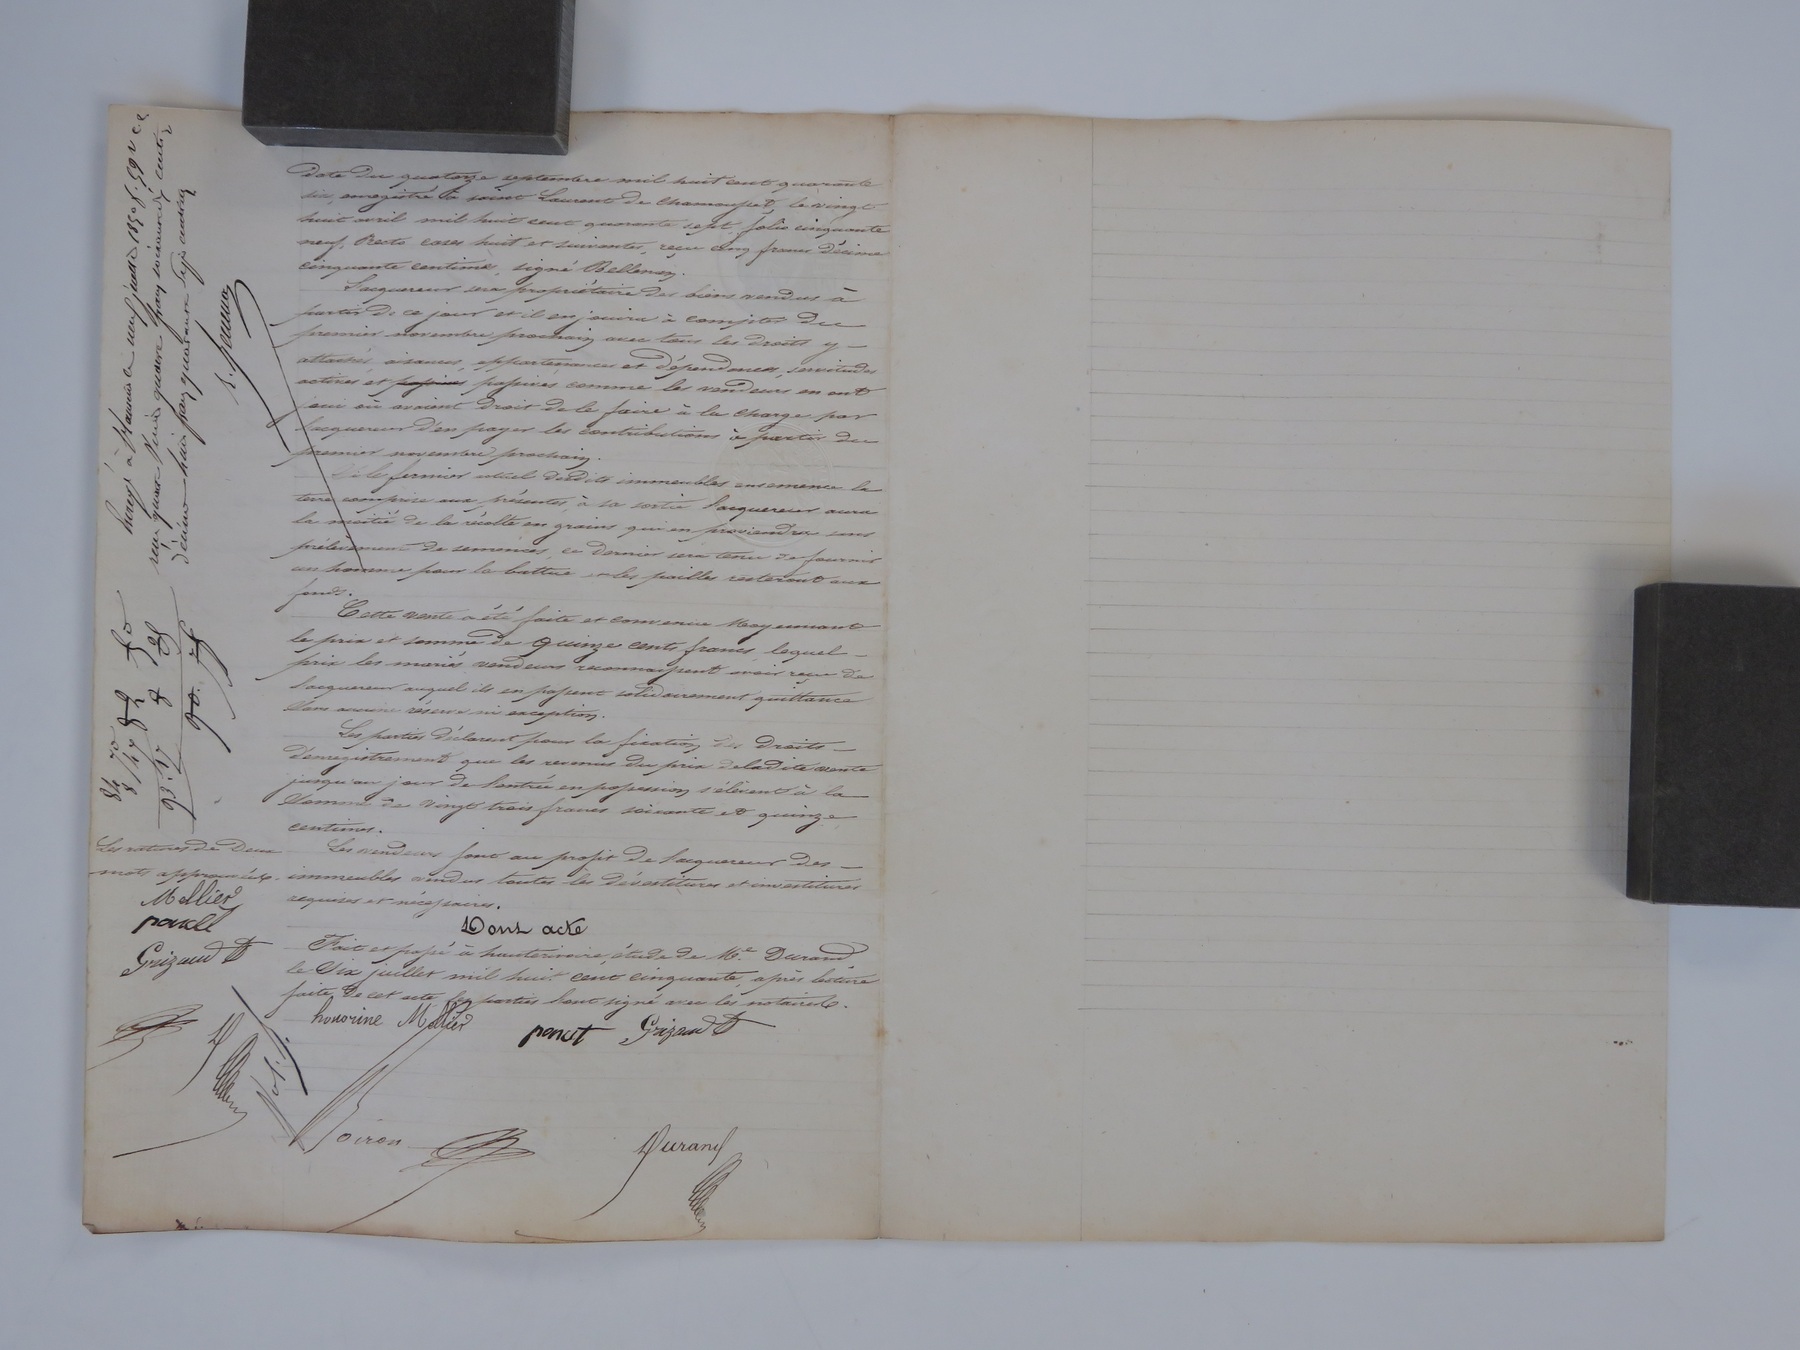 date du quatorze septembre mil huit cent quarante
six, enregistré à saint Laurent de Chamousset, le vingt
huit avril mil huit cent quarante sept, folio cinquante
neuf, Recto cases huit et suivantes, reçu cinq francs décime
cinquante centime, signé
L'acquereur sera propriétaire des biens vendus à
partir de ce jour et il en jouira à compter du
premier novembre prochain avec tous les droits y
attachés, aisances, appartenances et dépendances, servitudes
actives et passives comme les vendeurs en ont
joui où avaient droit de le faire à la charge par
l'acquereur d'en payer les contributions à partir du
premier novembre prochain.
Si le fermier actuel desdits immeubles ensemence la
terre comprise aux présentes, à sa sortie l'acquereur aura
la moitié de la récolte en grains qui en proviendra sans
prélèvement de semences, ce dernier sera tenu de fournir
un homme pour la batture et les pailles resteront aux
fonds.
Cette vente a été faite et convenue Moyennant
le prix et somme de Quinze cents francs lequel
prix les mariés vendeurs reconnaissent avoir reçu de
l'acquereur auquel ils en passent solidairement quittance
sans aucune réserve ni exception.
Les parties déclarent pour la fixation des droits
d'enregistrement que les revenus du prix de ladite vente
jusqu'au jour de l'entrée en possession s'élèvent à la
somme de vingt trois francs soixante et quinze
centimes.
Les vendeurs font au profit de l'acquereur des
immeubles vendus toutes les dévestitures et investitures
requises et nécessaires.
Dont acte
Fait et passé à hauterivoire étude de Me. Durand
le Six juillet mil huit cent cinquante, après lecture
faite de cet acte les parties l'ont signé avec les notaires.
honorine Mellier poncet Grizaud
Durand
Les ratures de Deux
mots approuvées.
Mellier
Grizaud